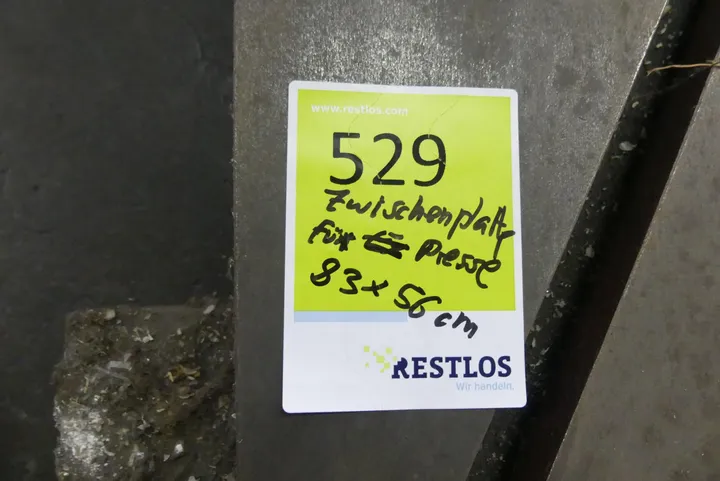 www.restlos.com
529
Zwischenplatte
für Presse
83x56 cm
RESTLOS
Wir handeln.